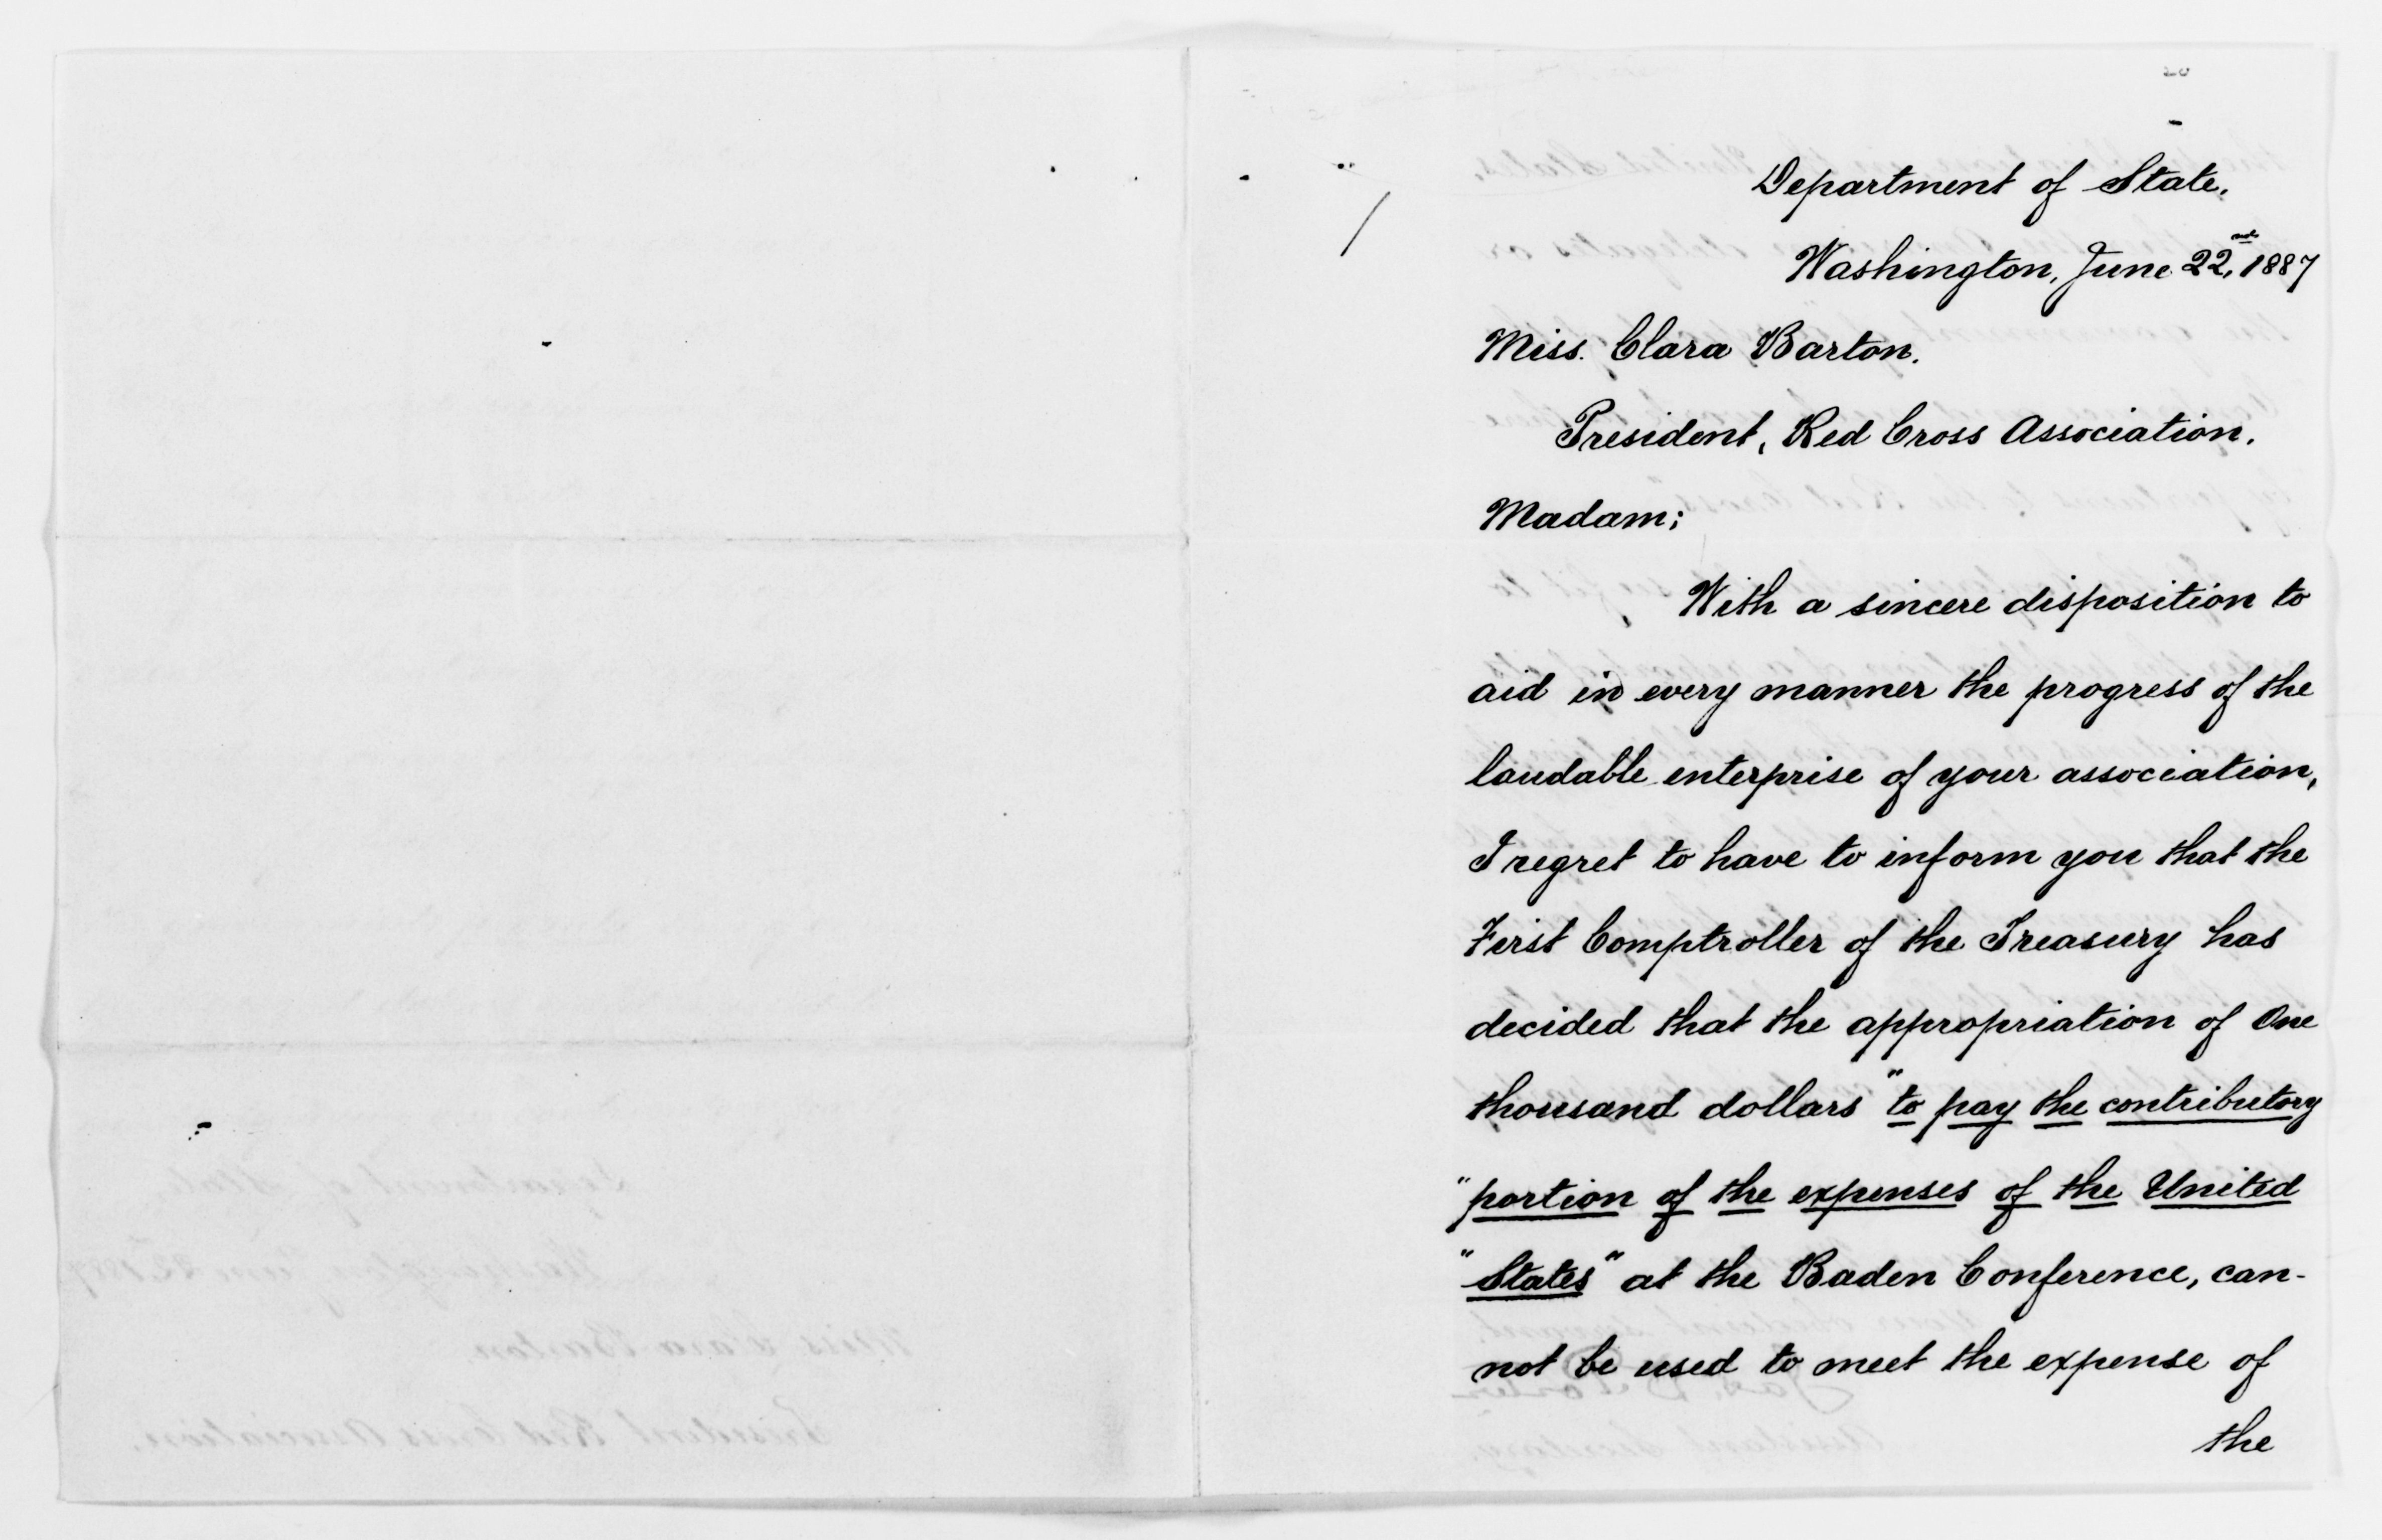 Department of State,
Washington, June 22nd, 1887
Miss. Clara Barton.
President, Red Cross Association.
Madam;
With a sincere disposition to
aid in every manner the progress of the
laudable enterprise of your association,
I regret to have to inform you that the
First Comptroller of the Treasury has
decided that the appropriation of One
thousand dollars "to pay the contributory
"portion of the expenses of the United
"States" at the Baden Conference, can-
not be used to meet the expense of
the